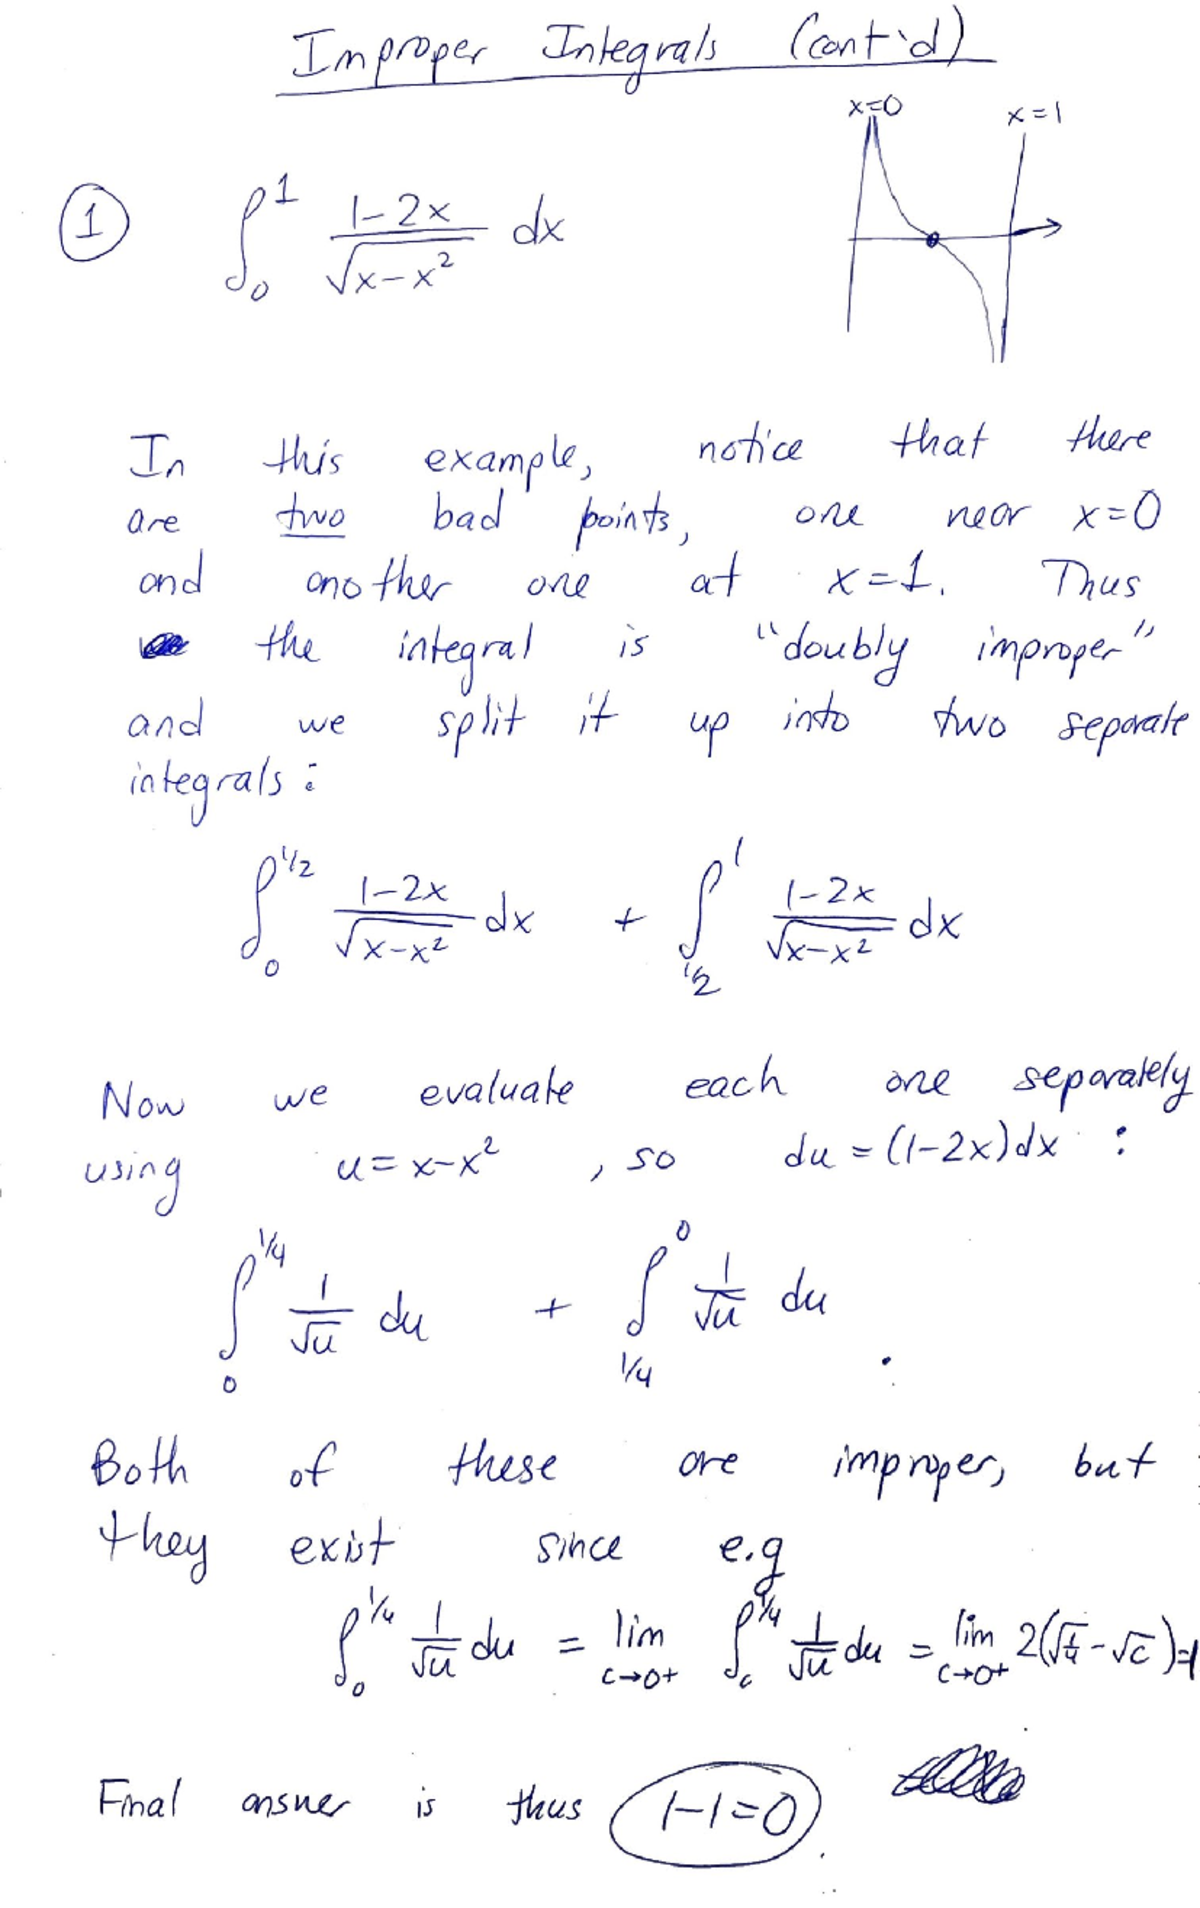 Improper Integrals (cont'd)
x=0 x=1
① ∫₀¹ (1-2x)/√(x-x²) dx
In this example, notice that there
are two bad points, one near x=0
and another one at x=1. Thus
the integral is "doubly improper"
and we split it up into two separate
integrals:
∫₀^{1/2} (1-2x)/√(x-x²) dx + ∫_{1/2}^1 (1-2x)/√(x-x²) dx
Now we evaluate each one separately
using u=x-x², so du=(1-2x)dx :
∫₀^{1/4} 1/√u du + ∫_{1/4}^0 1/√u du.
Both of these are improper, but
they exist since e.g
∫₀^{1/4} 1/√u du = lim_{c→0+} ∫_c^{1/4} 1/√u du = lim_{c→0+} 2(√(1/4)-√c)=1
Final answer is thus 1-1=0.